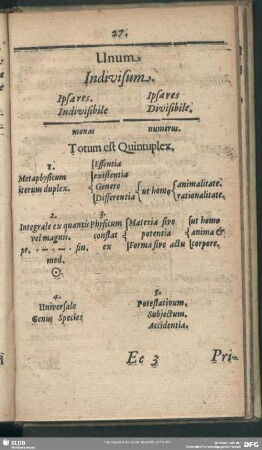 27.
Unum
Indivisum.
Ipsares. Ipsares
Indivisibile Divisibile.
monas numerus.
Totum est Quintuplex.
1. Essentia
Metaphysicum existentia
iterum duplex. Genere ut homo animalitate.
Differentia rationalitate.
2. 3.
Integrale ex quantis Physicum Materia sive ut homo
vel magnis. constat potentia anima &
pr. fin. ex Forma sive actu corpore.
med.
4. 5.
Universale Potestativum.
Genus Species Subjectum.
Accidentia.
Ee 3 Pri-
SLUB
DFG